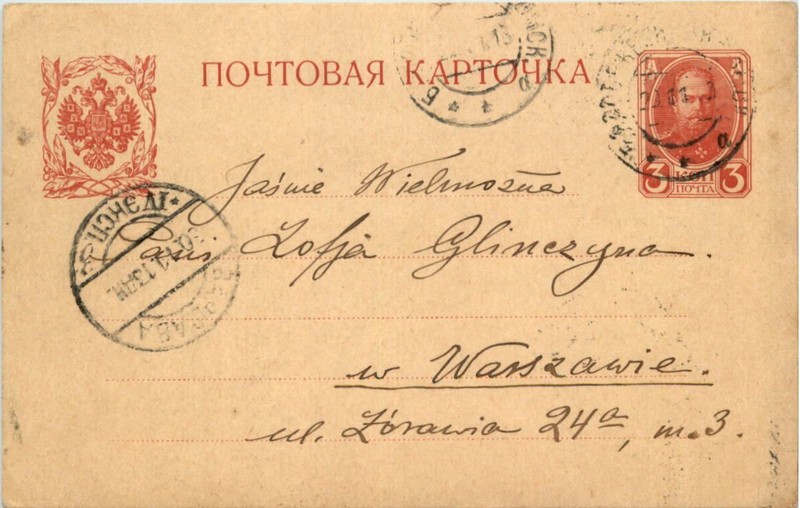 ПОЧТОВАЯ КАРТОЧКА
3 КОП 3
ПОЧТА
Jaśnie Wielmożna
Pani Zofja Glinczyna.
w Warszawie.
ul. Żórawia 24a, m. 3.
ВАРШАВА